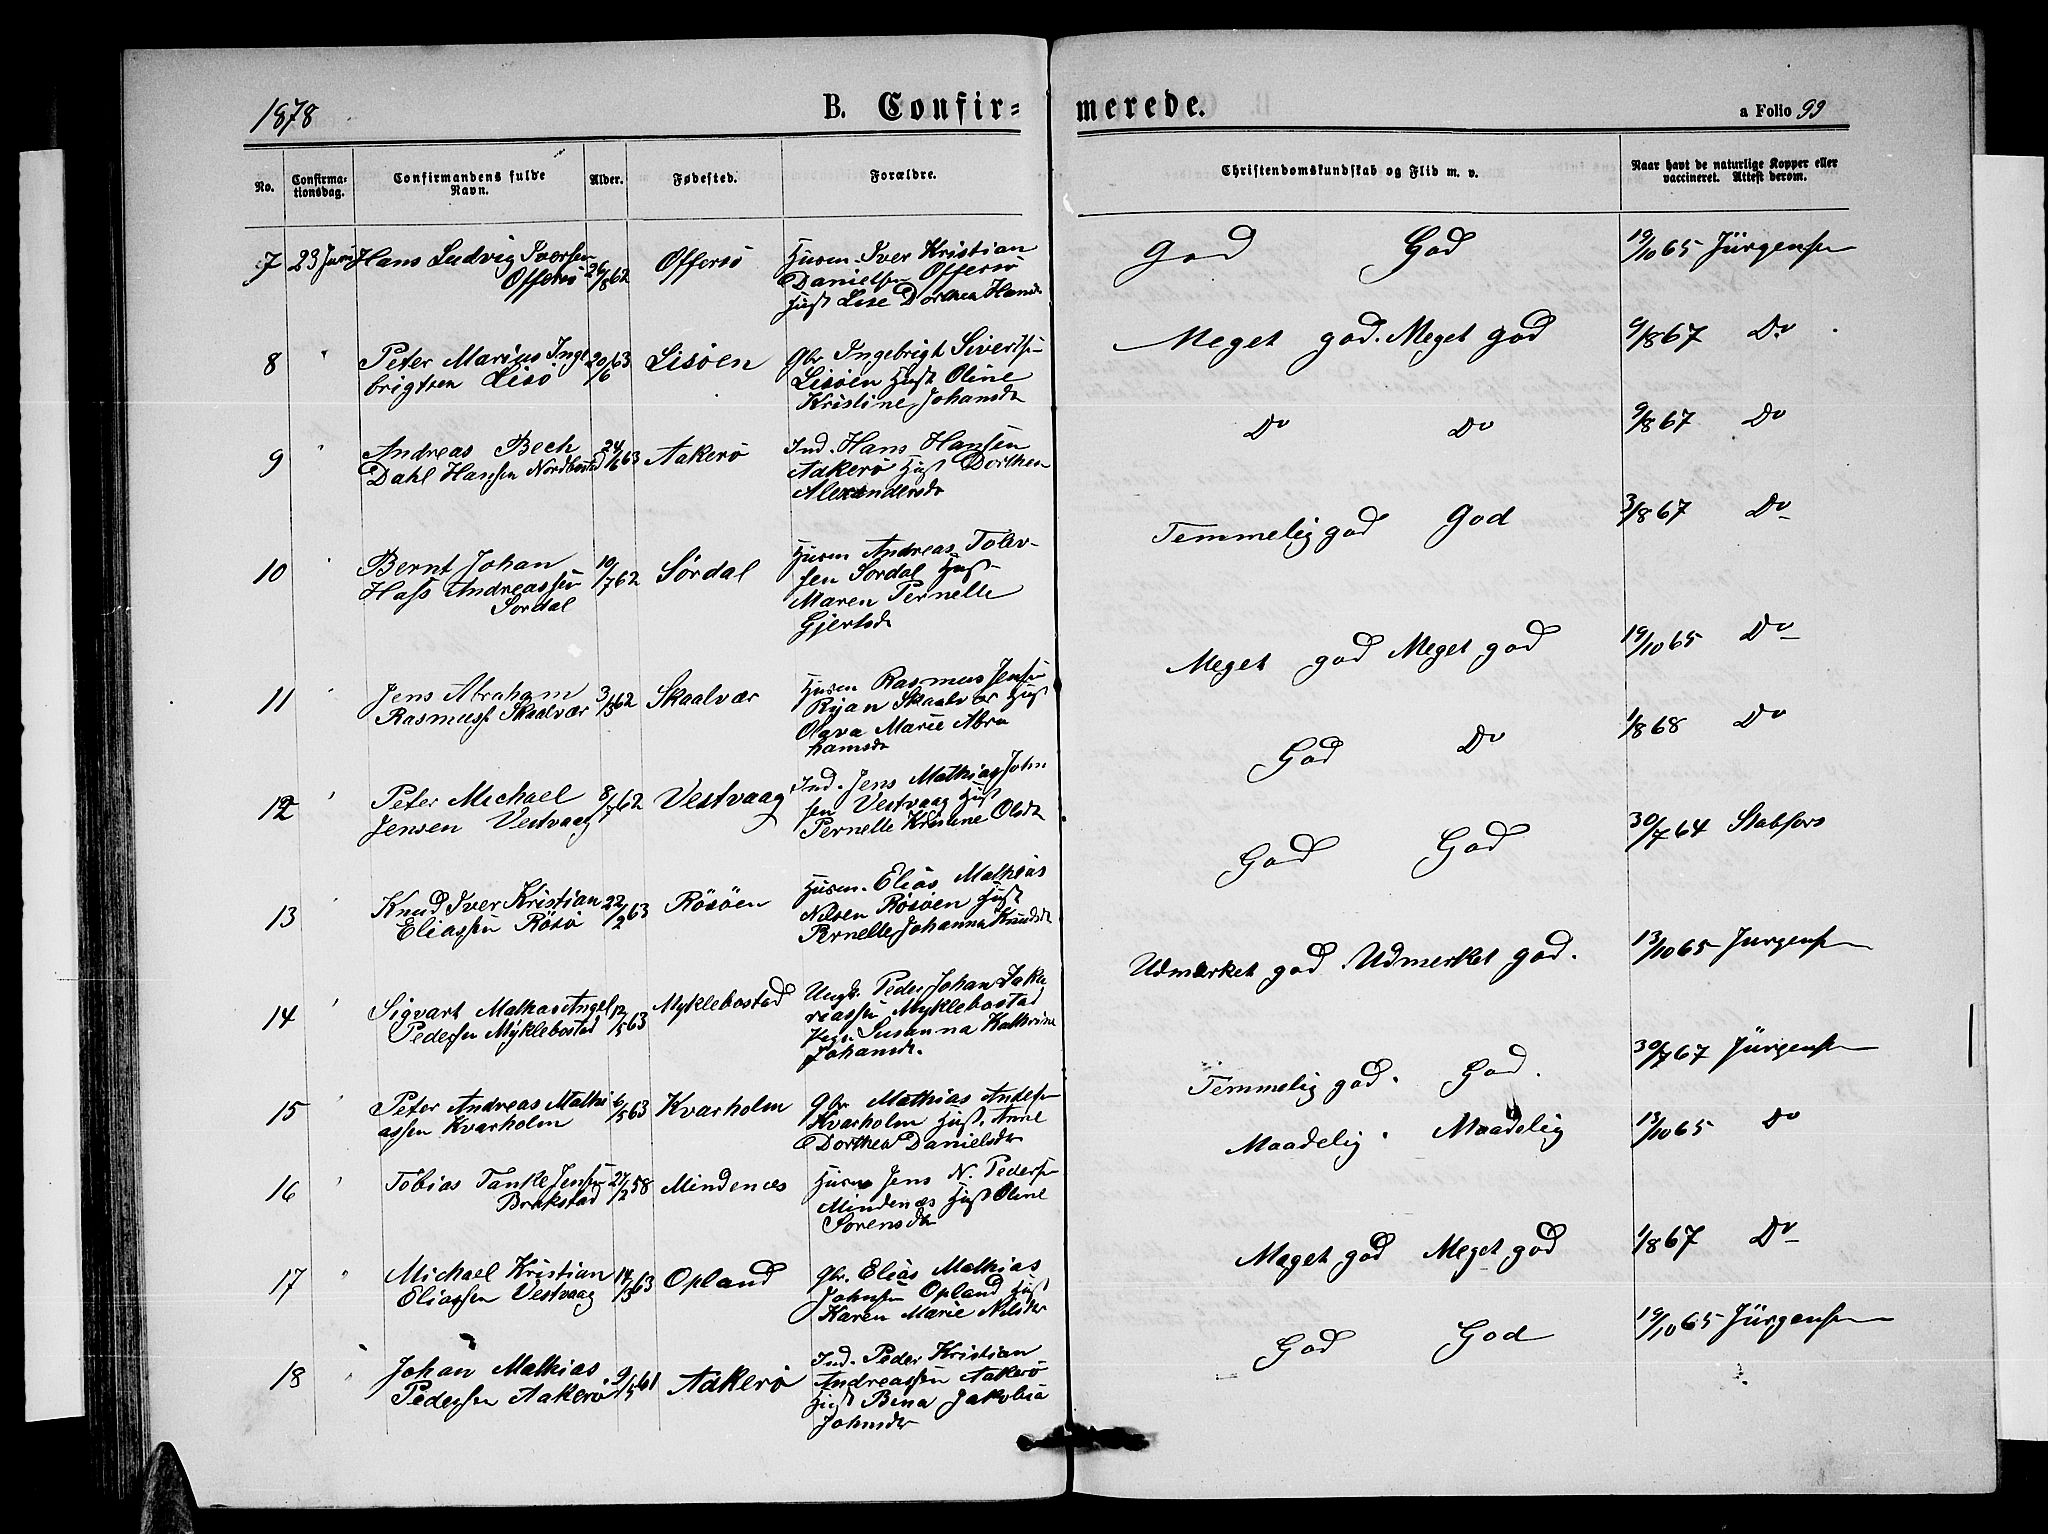 1878
B. Confir-
merede.
a Folio 99
No.
Confirma-
tionsdag.
Confirmandens fulde
Navn.
Alder.
Fødested.
Forældre.
Christendomskundskab og Flid m. v.
Naar havt de naturlige Kopper eller
vaccineret. Attest derom.
7 23 Juni Hans Ludvig Iversen
Offersø 26/8 62 Offersø
Husm. Iver Kristian
Danielsen Offersø
Hust Lise Dorthea Hansdr
God God 19/10 65 Jürgensen
8 " Peter Marius Inge
brigtsen Lisø 20/6 63 Lisøen
Gbr Ingebrigt Sivertsen
Lisøen Hust Oline
Kristine Johansdr
Meget god. Meget god 9/8 67 Do
9 " Andreas Bech
Dahl Hansen Nordbostad 24/6 63 Aakerø
Ind. Hans Hansen
Aakerø Hust Dorthea
Alexandersdr
Do Do 9/8 67 Do
10 " Bernt Johan
Hass Andreassen
Sørdal 10/7 62 Sørdal
Husm Andreas Tolev-
sen Sørdal Hust
Maren Pernelle
Gjertsdr
Temmelig god God 3/8 67 Do
11 " Jens Abraham
Rasmuss Skaalvær 3/3 62 Skaalvær
Husm Rasmus Jensen
Ryan Skaalvær Hust
Olava Marie Abra
hamsdr
Meget god Meget god 19/10 65 Do
12 " Peter Michael
Jensen Vestvaag 8/7 62 Vestvaag
Ind. Jens Mathias John
sen Vestvaag Hust
Pernelle Kristine Olsdr
God Do 1/8 68 Do
13 " Knud Iver Kristian
Eliassen Røsø 22/2 63 Røsøen
Husm. Elias Mathias
Nilsen Røsøen Hust
Pernelle Johanna Knudsdr
God God 30/7 64 Stabfors
14 " Sigvart Mathias Angel
Pedersen Myklebostad 12/5 63 Myklebostad
Ungk. Peder Johan Zaka
riassen Myklebostad
Pige Susanna Kathrine
Johansdr.
Udmærket god. Udmerket god. 13/10 65 Jurgensen
15 Peter Andreas Mathi
assen Kvarholm 6/5 63 Kvarholm
Gbr Mathias Andersen
Kvarholm Hust. Anne
Dorthea Danielsdr
Temmelig god. God. 30/7 67 Jürgensen
16 " Tobias Tanke Jensen
Brækstad 27/2 58 Mindenæs
Husm Jens N. Pedersen
Mindenæs Hust Oline
Sørensdr
Maadelig. Maadelig 13/10 65 Do
17 " Michael Kristian
Eliassen Vestvaag 14/3 63 Opland
Gbr. Elias Mathias
Johnsen Opland Hust
Karen Marie Nilsdr
Meget god Meget god 1/8 67 Do
18 " Johan Mathias
Pedersen Aakerø 9/5 61 Aakerø
Ind. Peder Kristian
Andreassen Aakerø
Hust Bina Jakobia
Johnsdr
God God 19/10 65 Jürgensen